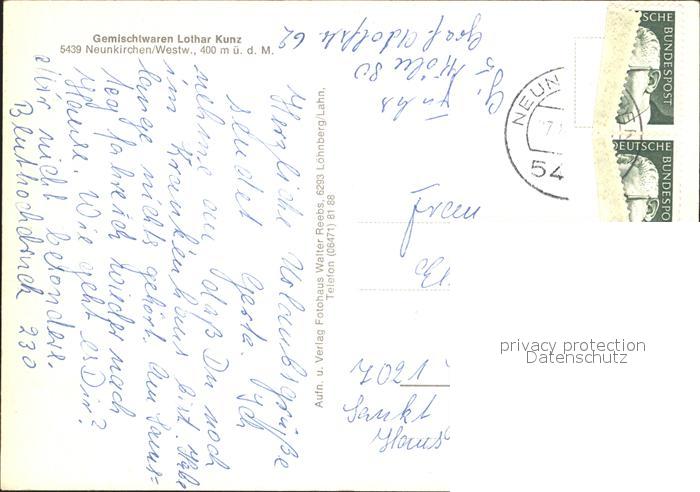 Gemischtwaren Lothar Kunz
5439 Neunkirchen/Westw., 400 m ü. d. M.
Herzliche Urlaubsgrüße
sendet Gerta. Ich
nehme an daß Du noch
im Krankenhaus bist. Habe
lange nichts gehört. Am Sams-
tag fahre ich wieder nach
Hause. Wie geht es Dir?
Mir nicht besonders.
Bluthochdruck 230
Aufn. u. Verlag Fotohaus Walter Reebs, 6293 Löhnberg/Lahn,
Telefon (06471) 81 88
Fuhs
5 Köln 80
Graf Adolfstr 62
NEUN
EN
54
DEUTSCHE BUNDESPOST
DEUTSCHE BUNDESPO
Frau
El
7021
Sankt
Haus
privacy protection
Datenschutz